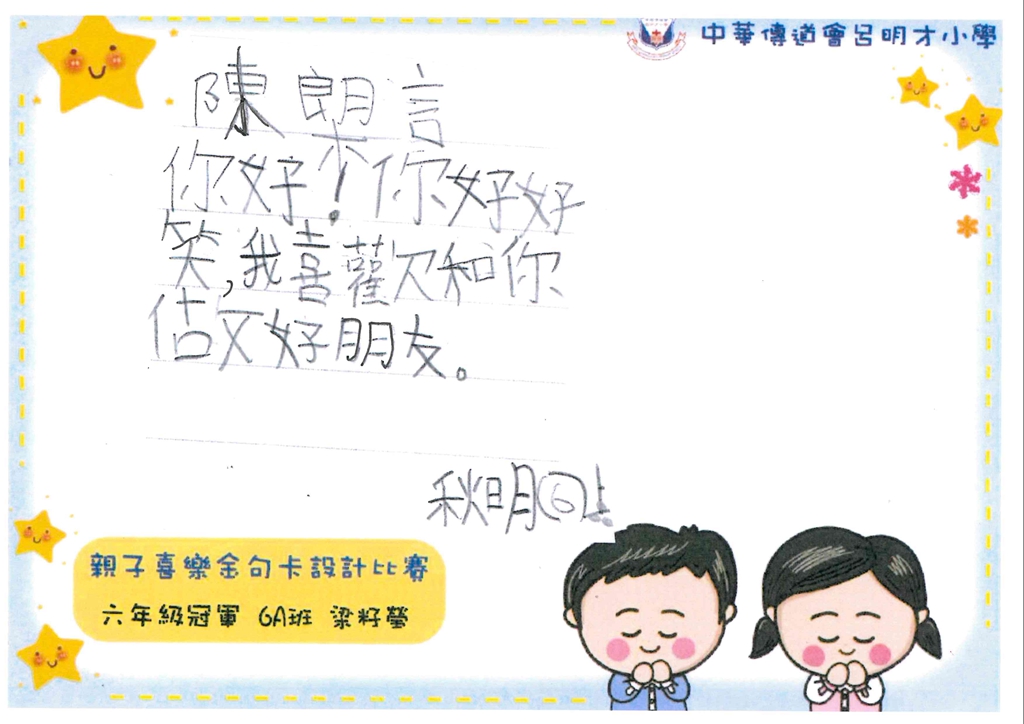 中華傳道會呂明才小學
陳朗言
你好!你好好
笑,我喜歡和你
好朋友。
親子喜樂金句卡設計比賽
六年級冠軍 6A班 梁籽瑩